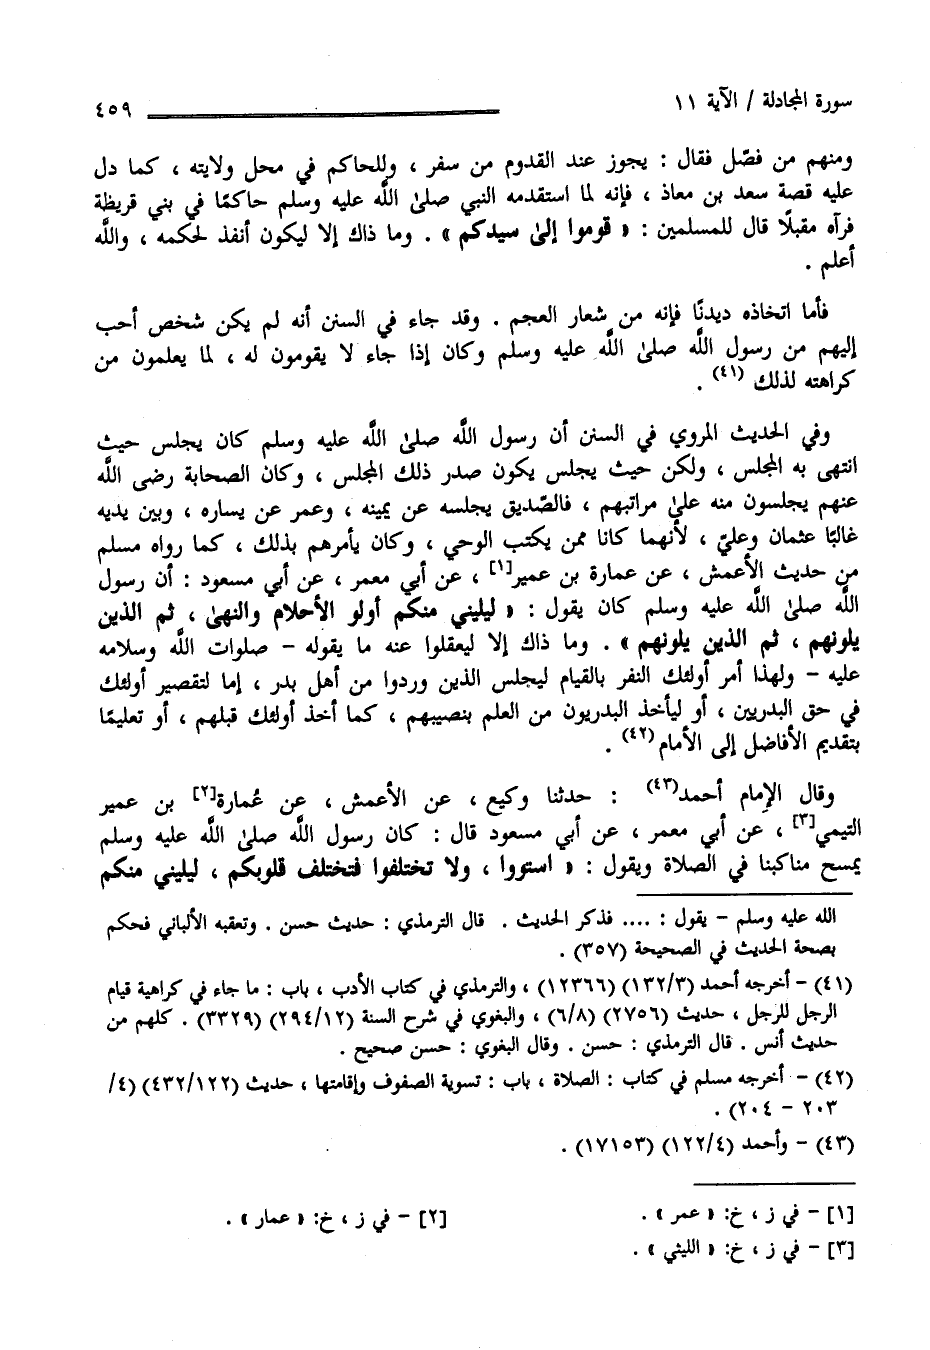 سورة المجادلة / الآية ١١ ٤٥٩
ومنهم من فصّل فقال : يجوز عند القدوم من سفر ، وللحاكم في محل ولايته ، كما دل
عليه قصة سعد بن معاذ ، فإنه لما استقدمه النبي صلىٰ اللَّه عليه وسلم حاكمًا في بني قريظة
فرآه مقبلًا قال للمسلمين : « قوموا إلىٰ سيدكم » . وما ذاك إلا ليكون أنفذ لحكمه ، واللَّه
أعلم .
فأما اتخاذه ديدنًا فإنه من شعار العجم . وقد جاء في السنن أنه لم يكن شخص أحب
إليهم من رسول اللَّه صلىٰ اللَّه عليه وسلم وكان إذا جاء لا يقومون له ، لما يعلمون من
كراهته لذلك (٤١) .
وفي الحديث المروي في السنن أن رسول اللَّه صلىٰ اللَّه عليه وسلم كان يجلس حيث
انتهى به المجلس ، ولكن حيث يجلس يكون صدر ذلك المجلس ، وكان الصحابة رضى اللَّه
عنهم يجلسون منه علىٰ مراتبهم ، فالصّديق يجلسه عن يمينه ، وعمر عن يساره ، وبين يديه
غالبًا عثمان وعليّ ، لأنهما كانا ممن يكتب الوحي ، وكان يأمرهم بذلك ، كما رواه مسلم
من حديث الأعمش ، عن عمارة بن عمير[١] ، عن أبي معمر ، عن أبي مسعود : أن رسول
اللَّه صلىٰ اللَّه عليه وسلم كان يقول : « ليليني منكم أولو الأحلام والنهىٰ ، ثم الذين
يلونهم ، ثم الذين يلونهم » . وما ذاك إلا ليعقلوا عنه ما يقوله – صلوات اللَّه وسلامه
عليه – ولهذا أمر أولئك النفر بالقيام ليجلس الذين وردوا من أهل بدر ، إما لتقصير أولئك
في حق البدريين ، أو ليأخذ البدريون من العلم بنصيبهم ، كما أخذ أولئك قبلهم ، أو تعليمًا
بتقديم الأفاضل إلى الأمام(٤٢) .
وقال الإمام أحمد(٤٣) : حدثنا وكيع ، عن الأعمش ، عن عُمارة[٢] بن عمير
التيمي[٣] ، عن أبي معمر ، عن أبي مسعود قال : كان رسول اللَّه صلىٰ اللَّه عليه وسلم
يمسح مناكبنا في الصلاة ويقول : « استووا ، ولا تختلفوا فتختلف قلوبكم ، ليليني منكم
الله عليه وسلم – يقول : .... فذكر الحديث . قال الترمذي : حديث حسن . وتعقبه الألباني فحكم
بصحة الحديث في الصحيحة (٣٥٧) .
(٤١) – أخرجه أحمد (١٣٢/٣) (١٢٣٦٦) ، والترمذي في كتاب الأدب ، باب : ما جاء في كراهية قيام
الرجل للرجل ، حديث (٢٧٥٦) (٦/٨) ، والبغوي في شرح السنة (٢٩٤/١٢) (٣٣٢٩) . كلهم من
حديث أنس . قال الترمذي : حسن . وقال البغوي : حسن صحيح .
(٤٢) – أخرجه مسلم في كتاب : الصلاة ، باب : تسوية الصفوف وإقامتها ، حديث (٤٣٢/١٢٢) (٤/
٢٠٣ – ٢٠٤) .
(٤٣) – وأحمد (١٢٢/٤) (١٧١٥٣) .
[١] – في ز ، خ: « عمر » . [٢] – في ز ، خ: « عمار » .
[٣] – في ز ، خ: « الليثي » .